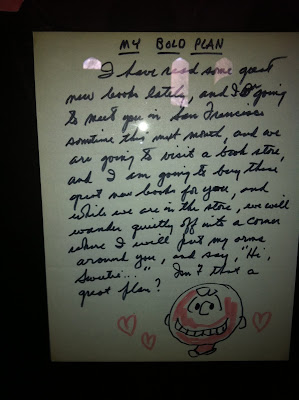 MY BOLD PLAN
I have read some great
new books lately, and I'm going
to meet you in San Francisco
sometime this next month, and we
are going to visit a book store,
and I am going to buy those
great new books for you, and
while we are in the store, we will
wander quietly off into a corner
where I will put my arms
around you, and say, "Hi,
Sweetie..." Isn't that a
great plan?